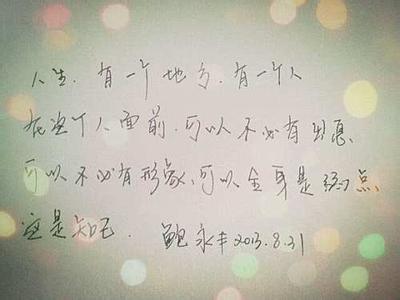 人生.有一个地方.有一个人
在这个人面前.可以不必有出息.
可以不必有形象.可以全身是缺点.
这是知己. 鲍永丰2013.8.31